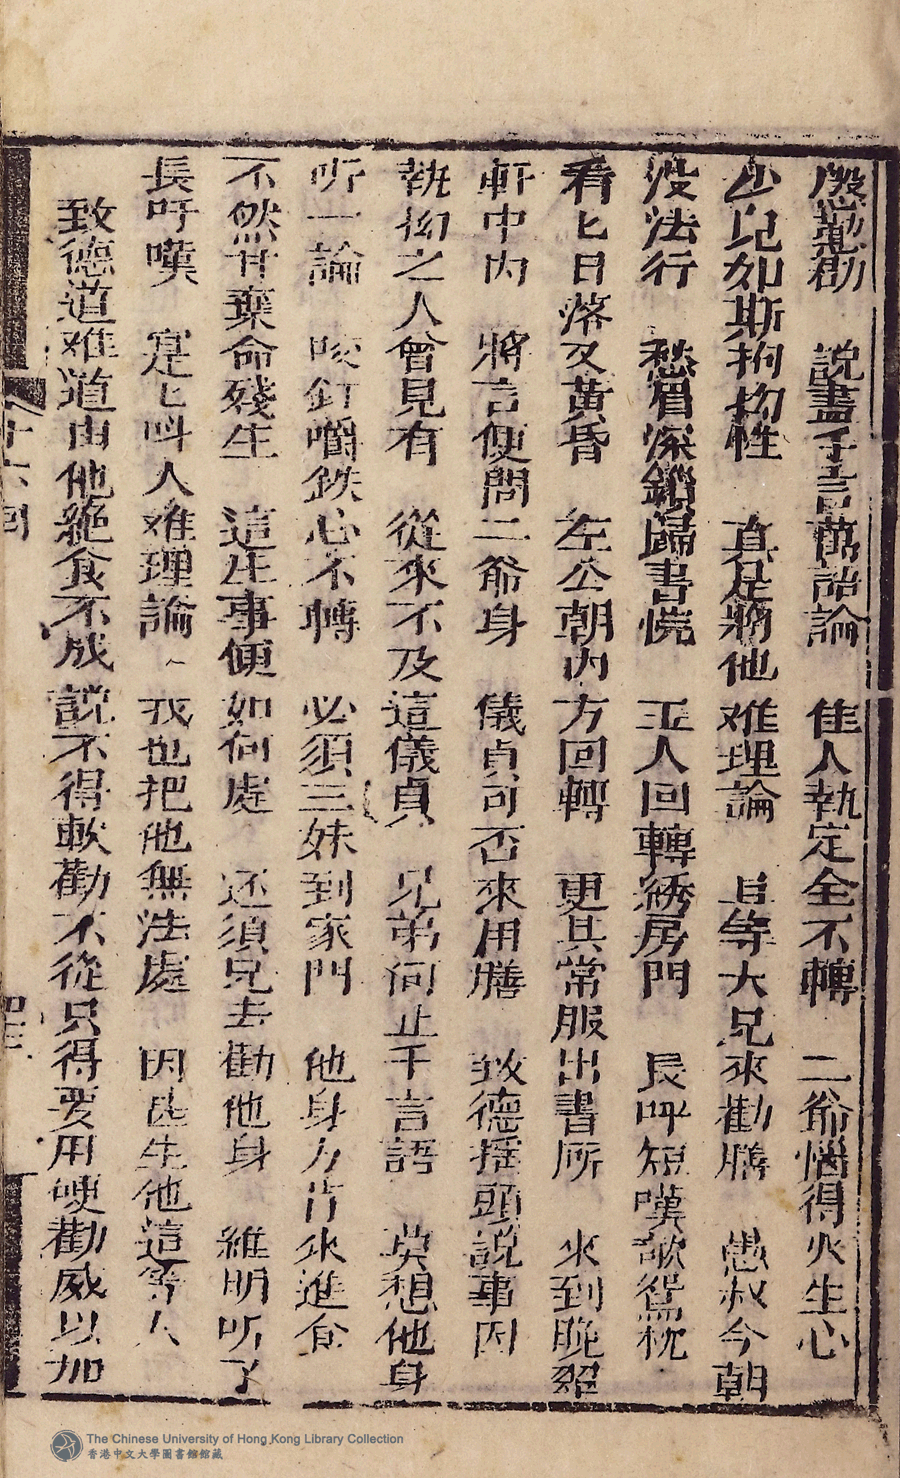 慇懃勸　說盡千言萬語論　佳人執定全不轉　二爺惱得火生心
少兒如斯拘拗性　真是將他难理論　且等大兄來勸膳　愚叔今朝
没法行　愁眉深鎖歸書㡆　玉人回轉綉房門　長吁短嘆欹鴛枕
看匕日落又黃昏　左公朝内方回轉　更其常服出書所　來到晚翠
軒中内　將言便問二爺身　儀貞可否來用膳　致德摇頭説事因
執拗之人曾見有　從來不及這儀貞　兄弟何止千言語　莫想他身
听一論　咬釘嚼鉄心不轉　必須三妹到家門　他身方肯來進食
不然甘棄命殘生　這生事便如何處　还須兄去勸他身　維明听了
長吁嘆　寔匕呌人难理論　我也把他無法處　因此生他這等人
致德道难道由他絕食不成說不得軟勸不從只得要用硬勸威以加
十六回
The Chinese University of Hong Kong Library Collection
香港中文大學圖書館館藏